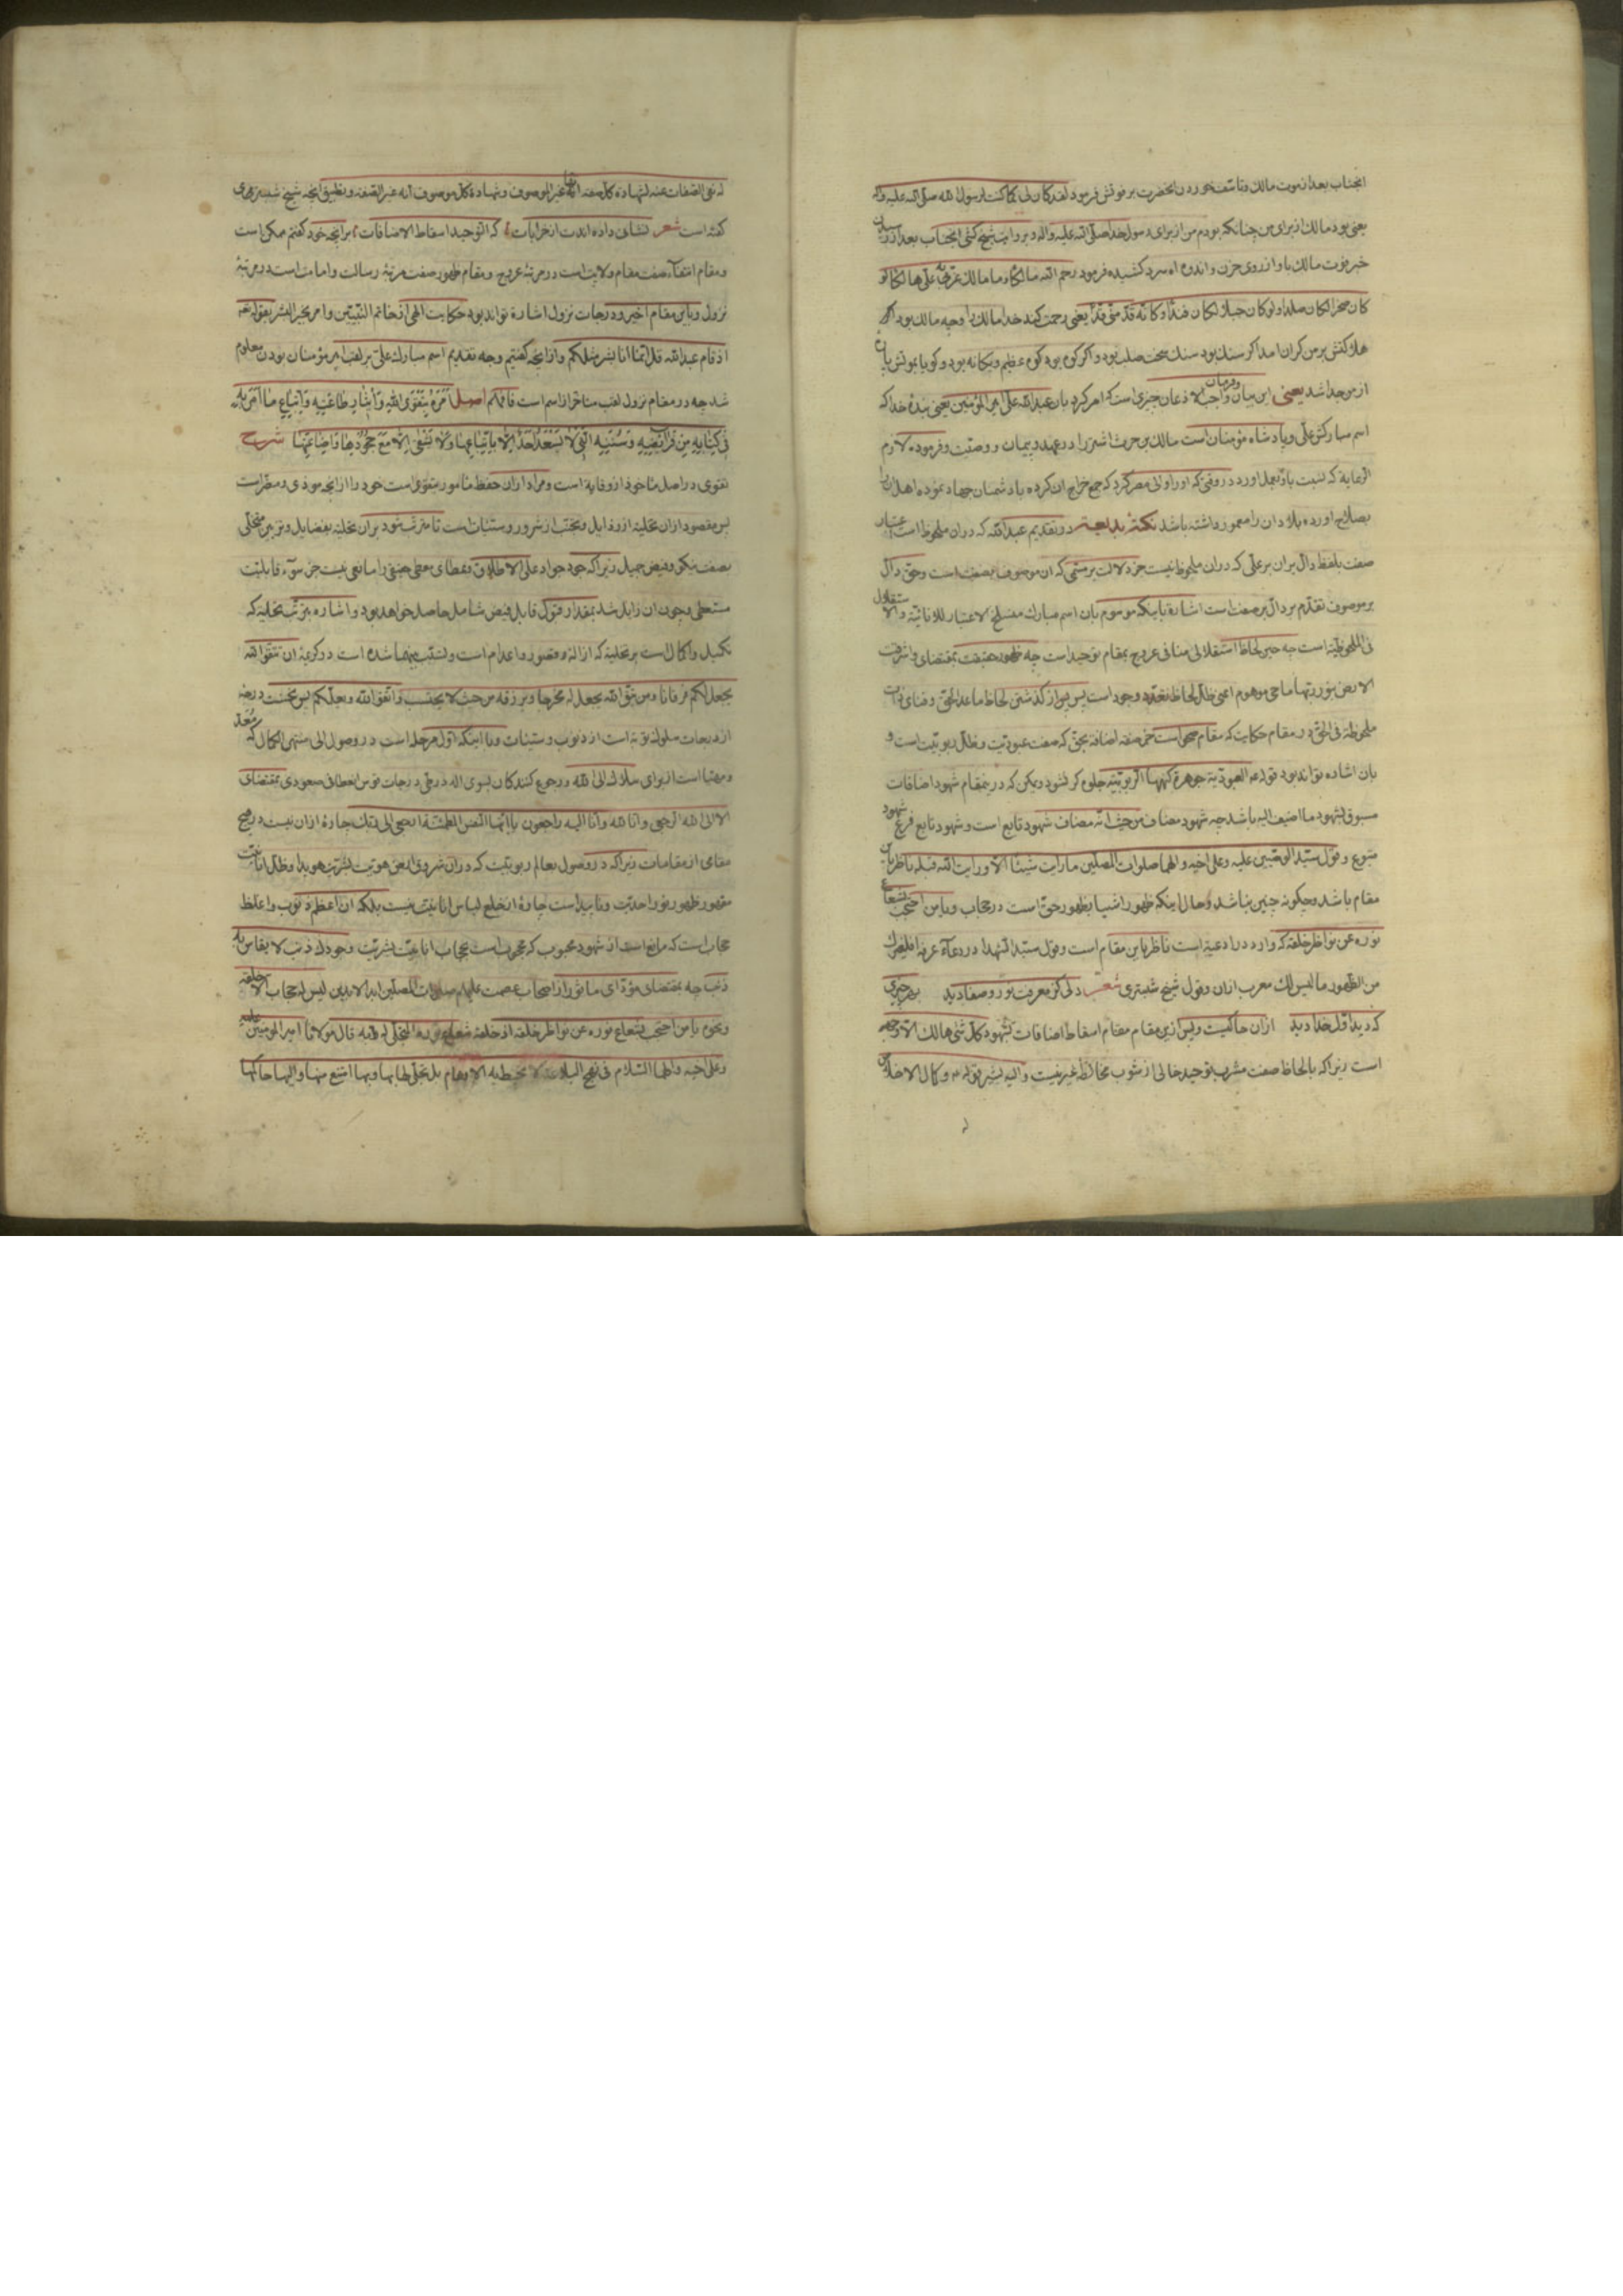 انجناب بعد از موت مالك وتاسف خوردن انحضرت بر فوتش فرمود لقد كان لى كما كنت لرسول الله صلى الله عليه واله
يعنى بود مالك از براى من چنانكه بودم من از براى رسول خدا صلى الله عليه واله و بروايت شيخ كشى انجناب بعد از رسيدن
خبر فوت مالك باو از روى حزن و اندوه اه سرد كشيده فرمود رحم الله مالكا وما مالك عز على هالكا لو
كان صخرا لكان صلدا ولو كان جبلا لكان فندا وكانه قد منى قدا يعنى رحمت كند خدا مالك را وچه مالك بود اكر
هلاكتش بر من كران امد اكر سنك بود سنك سخت صلب بود و اكر كوه بود كوه عظيم ويكانه بود و كويا بموتش پاره
از من جدا شد يعنى اين بيان واجب الاذعان چيزى است كه امر كرد بان عبد الله على امير المؤمنين يعنى بنده خدا كه
اسم مباركش على و پادشاه مؤمنان است مالك بن حرث اشتر را در عهد و پيمان و وصيت و فرموده لازم
الرعايه كه نسبت باو بعمل اورد در وقتى كه او را والى مصر كرد كه جمع خراج ان كرده با دشمنان جهاد نموده اهل ان را
بصلاح اورده بلاد ان را معمور داشته باشد نكتة بديعة در تقديم عبد الله كه دران ملحوظ است اعتبار
صفت بلفظ دال بران بر على كه دران ملحوظ نيست جز دلالت بر مسمى كه ان موصوف بصفت است وحق دال
بر موصوف تقدم بر دال بر صفت است اشارة باينكه موسوم بان اسم مبارك منسلخ الاعتبار للانانية والاستقلال
فى الملحوظية است چه حين لحاظ استقلالى منافى عروج بمقام توحيد است چه ظهور حقيقت بمقتضاى واشرقت
الارض بنور ربها ماحى موهوم اعنى ظلال لحاظ تعدد وجود است پس پس از كذشتن لحاظ ما عدا الحق وفناى ذات
ملحوظة فى الحق در مقام حكايت كه مقام صحو است حق صفة اضافة بحق كه صفت عبوديت و ظلال ربوبيت است و
بان اشاره تواند بود قوله ع العبودية جوهرة كنهها الربوبية جلوه كر شود وممكن كه در ينمقام شهود اضافات
مسبوق بشهود ما اضيف اليه باشد چه شهود مضاف من حيث انه مضاف شهود تابع است و شهود تابع فرع شهود
متبوع و قول سيد الوصيين عليه وعلى اخيه والهما صلوات المصلين ما رايت شيئا الا ورايت الله قبله ناظر باين
مقام باشد وچكونه چنين نباشد وحال اينكه ظهور اشيا بظهور حق است در حجاب ويا من احتجب بشعاع
نوره عن نواظر خلقه كه وارد در ادعية است ناظر باين مقام است و قول سيد الشهدا در دعاء عرفه ايكون لغيرك
من الظهور ما ليس لك معرب ازان وقول شيخ شبسترى شعر دلى كز معرفت نور و صفا ديد بهر چيزى
كه ديد اول خدا ديد ازان حاكيست و پس ازين مقام مقام اسقاط اضافات بشهود كل شئ هالك الا وجهه
است زيرا كه با لحاظ صفت مشرب توحيد خالى از شوب مخالطه غير نيست واليه يشير قوله ع وكمال الاخلاص
له نفى الصفات عنه لشهادة كل صفة انها غير الموصوف وشهادة كل موصوف انه غير الصفة و بطبق انچه شيخ شبسترى
كفته است شعر نشانى داده اندت از خرابات كه التوحيد اسقاط الاضافات برانچه خود كفتم ممكن است
ومقام انتفاء صفت مقام ولايت است در مرتبه عروج و مقام ظهور صفت مرتبه رسالت و امامت است در مرتبه
نزول و باين مقام اخير و درجات نزول اشارة تواند بود حكايت الهى از خاتم النبيين وامر بخير البشر بقوله تعه
اذ قام عبد الله قل انما انا بشر مثلكم و از انچه كفتيم وجه تقديم اسم مبارك على بر لقب امير مؤمنان بودن معلوم
شد چه در مقام نزول لقب متاخر از اسم است فافهم اصل امره بتقوى الله وايثار طاعته واتباع ما امر به
فى كتابه من فرائضه وسننه التى لا يسعد احد الا باتباعها ولا يشقى الا مع جحودها واضاعتها شرح
تقوى در اصل ماخوذ از وقاية است و مراد ازان حفظ مامور بتقوى است خود را از انچه موذى و مضر است
پس مقصود ازان تخلية از رذايل و تجنب از شرور و سيئات است تا مترتب شود بران تحلية بفضايل و
بصفت نيكو و فيض جميل زيرا كه جود جواد على الاطلاق و عطاى معطى حقيقى را مانعى نيست جز سوء قابليت
مستعطى و چون ان زايل شد بمقدار قبول قابل فيض شامل حاصل خواهد بود و اشاره بترتب تحلية كه
تكميل و اكمال است بر تخلية كه ازاله و قصور و اعدام است و تسبب بينهما شده است در كريمه ان تتقوا الله
يجعل لكم فرقانا ومن يتق الله يجعل له مخرجا ويرزقه من حيث لا يحتسب واتقوا الله ويعلمكم پس نخست درجه
از درجات سلوك توبه است از ذنوب و سيئات و با اينكه اول مرحله است در وصول الى منتهى الكمال كه معد
و مهيا است از براى سلاك الى الله و رجوع كنندكان بسوى اله در طى درجات قوس انعطافى صعودى بمقتضاى
الا الى الله الرجعى وانا لله وانا اليه راجعون يا ايتها النفس المطمئنة ارجعى الى ربك چارة ازان نيست در هيچ
مقامى از مقامات زيرا كه در وصول بعالم ربوبيت كه دران شروق ارض هويت بشريت هويدا وظلال انانيت
مقهور ظهور نور احديت و ناپيداست چارة از خلع لباس انانيت نيست بلكه ان اعظم ذنوب و اغلظ
حجاب است كه مانع است از شهود محبوب كه محجوب است بحجاب انانيت بشريت وجودك ذنب لا يقاس به
ذنب چه بمقتضاى مؤداى ماثور از اصحاب عصمت عليهم صلوات المصلين ابد الابدين ليس له حجاب الا خلقه
ونحوه يا من احتجب بشعاع نوره عن نواظر خلقه اذ خلقه شعاع نوره المتجلى له به قال مولانا امير المؤمنين عليه
وعلى اخيه والهما السلام فى نهج البلاغة لا تحيط به الاوهام بل تجلى لها بها وبها امتنع منها واليها حاكمها